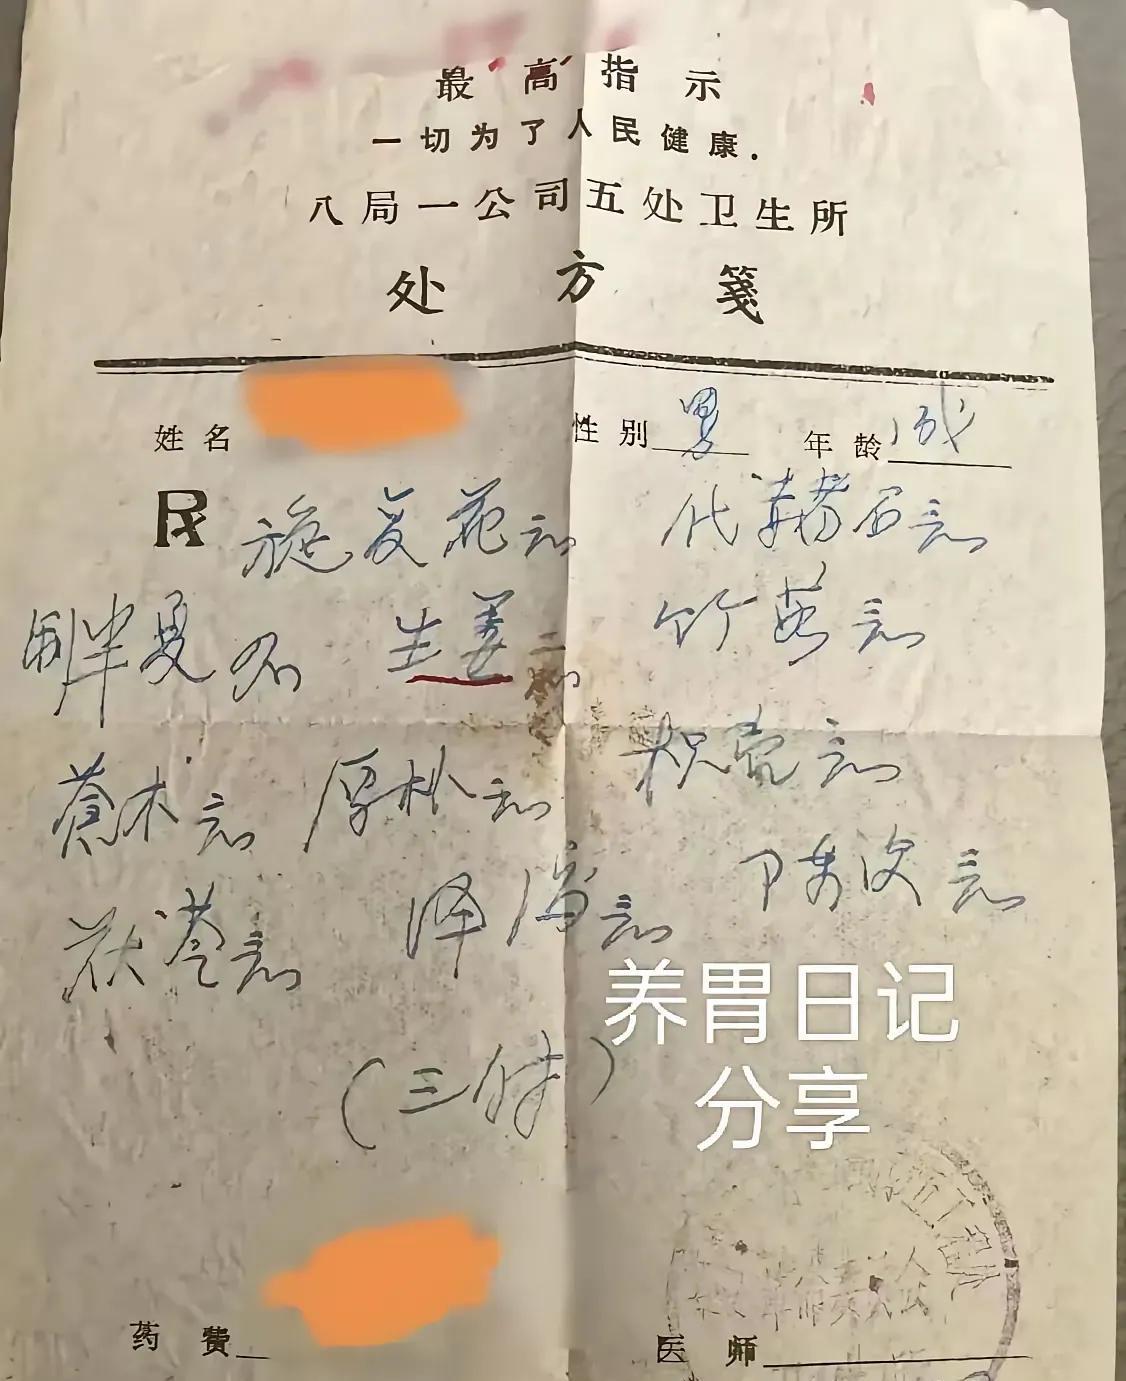 最高指示
一切为了人民健康.
八局一公司五处卫生所
处方笺
姓名 性别 男 年龄 成
R 旋复花 代赭石 三钱
制半夏 生姜 竹茹 三钱
苍术 三钱 厚朴 枳壳 三钱
茯苓 三钱 泽泻 三钱 陈皮 三钱
(三付)
养胃日记
分享
药费 医师